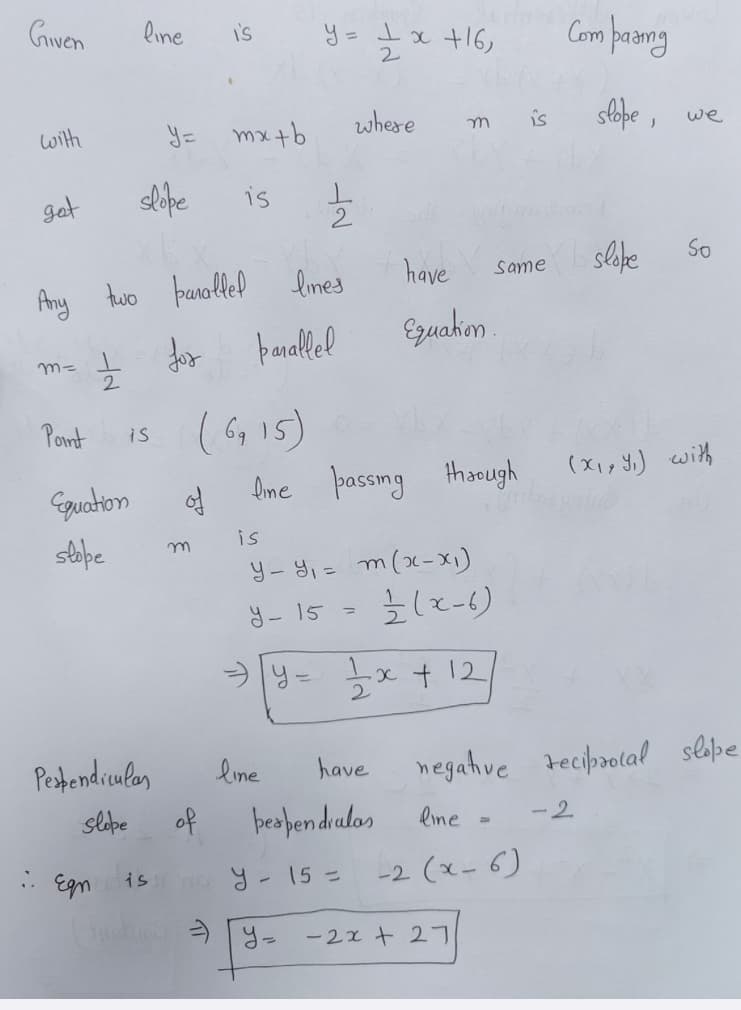 Given line is y = 1/2 x + 16, Comparing
with y = mx + b where m is slope, we
get slope is 1/2
Any two parallel lines have same slope so
m = 1/2 for parallel Equation.
Point is (6, 15)
Equation of line passing through (x₁, y₁) with
slope m is
y - y₁ = m(x - x₁)
y - 15 = 1/2 (x - 6)
⇒ y = 1/2 x + 12
Perpendicular line have negative reciprocal slope
slope of perpendicular line = -2
∴ Eqn is y - 15 = -2 (x - 6)
⇒ y = -2x + 27